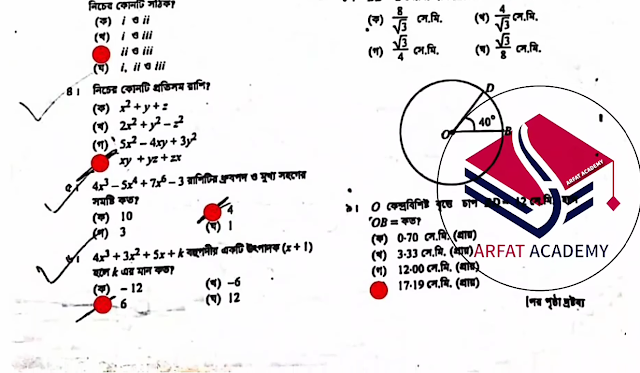 নিচের কোনটি সঠিক?
(ক) i ও ii
(খ) i ও iii
ii ও iii
(ঘ) i, ii ও iii
৪। নিচের কোনটি প্রতিসম রাশি?
(ক) x² + y + z
(খ) 2x² + y² − z²
(গ) 5x² − 4xy + 3y²
xy + yz + zx
৫। 4x³ − 5x⁴ + 7x⁶ − 3 রাশিটির ধ্রুবপদ ও মুখ্য সহগের
সমষ্টি কত?
(ক) 10
4
(গ) 3
(ঘ) 1
৬। 4x³ + 3x² + 5x + k বহুপদীর একটি উৎপাদক (x + 1)
হলে k এর মান কত?
(ক) − 12
(খ) −6
6
(ঘ) 12
(ক) 8/√3 সে.মি.
(খ) 4/√3 সে.মি.
(গ) √3/4 সে.মি.
(ঘ) √3/8 সে.মি.
D
O
40°
B
৯। O কেন্দ্রবিশিষ্ট বৃত্তে চাপ BD = 12 সে.মি.
OB = কত?
(ক) 0·70 সে.মি. (প্রায়)
(খ) 3·33 সে.মি. (প্রায়)
(গ) 12·00 সে.মি. (প্রায়)
17·19 সে.মি. (প্রায়)
[পর পৃষ্ঠা দ্রষ্টব্য
ARFAT ACADEMY
ARFAT ACADEMY